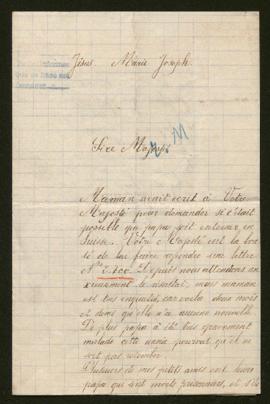 Jésus. Marie Joseph.
Sire Majesté
Maman avait écrit à Votre
Majesté pour demander si c'était
possible que papa soit interné en
Suisse. Votre Majesté eut la bon
té de lui faire répondre une lettre
Depuis nous attendons an
xieusement le résultat, mais maman
est très inquiète, car voilà deux mois
et demi qu'elle n'a aucune nouvelle
De plus papa a été très gravement
malade cette année pourvu qu'il ne
soit pas retombé.
Plusieurs de mes petits amis ont leurs
papa qui sont morts prisonniers, et s'il